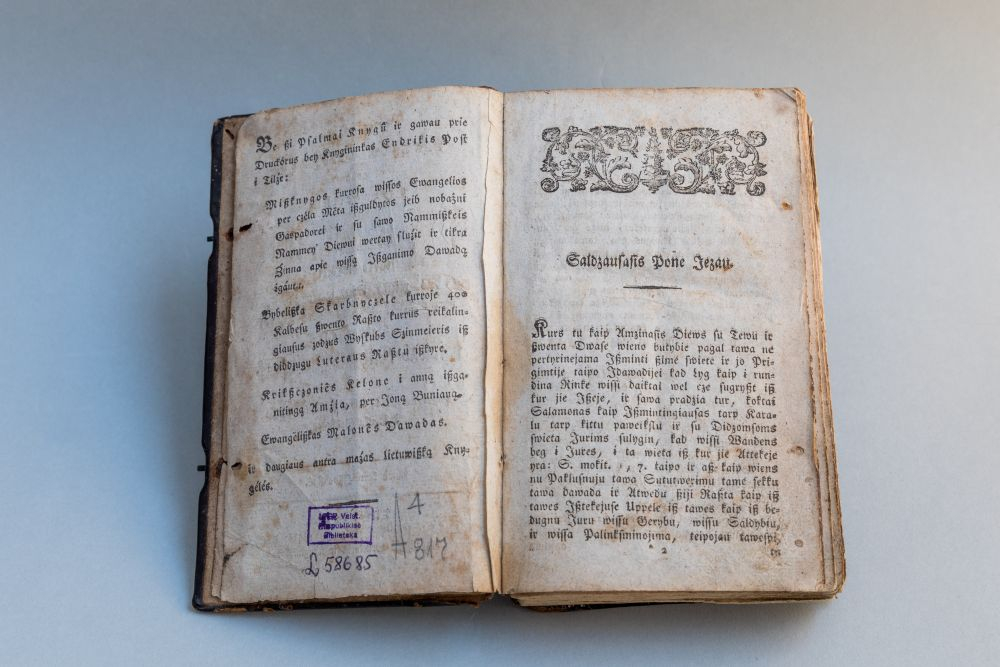 Be ßi Psalmai Knygû ir gawau prie
Druckórus bey Knygininkas Endrikis Post
i Tilźe:
Mißknygos kurrosa wissos Ewangelios
per czéla Méta ißguldytos jeib nobaźni
Gaspadorei ir su sawo Nammißkeis
Nammey Diewni wertay sluźit ir tikra
Źinna apie wissą Ißganimo Dawadą
źgáut.
Bybelißka Skarbnyczele kurroje 400
Kalbesu ßwento Raßto kurrius reikalin-
giausus zodzus Wyskubs Szinmeieris iß
diddzugu Luteraus Raßtû ißkyre.
Krikßczoniês Kelone i anną ißga-
nitingą Amźia, per Joną Buniaug.
Ewangélißkas Malonês Dawadas.
ir daugiaus antra maźas lietuwißką Kny-
gélés.
Valst.
Biblioteka
L 58685
A 4
817
Saldzausasis Pone Jezau.
Kurs tu kaip Amzinasis Diews su Tewu ir
ßwenta Dwase wiens butybie pagal tawa ne
pertyrinejama Ißminti ßime swiete ir jo Pri-
gimtije taipo Idawadijei kad lyg kaip i run-
dina Rinke wissi daiktai wel cze sugryßt iß
kur jie Ißeje, ir sawa pradzia tur, koktai
Salamonas kaip Ißmintingiausas tarp Kara-
lu tarp kittu paweikslu ir su Didzomsoms
swieta Jurims sulygin, kad wissi Wandens
beg i Jures, i ta wieta iß kur jie Attekeje
yra: S. mokit. , 7. taipo ir aß kaip wiens
nu Paklusnuju tawa Sututwerimu tame sekku
tawa dawada ir Atwedu ßiji Raßta kaip iß
tawes Ißtekejuse Uppele iß tawes kaip iß be-
dugnu Juru wissu Gerybu, wissu Saldybiu,
ir wissa Palinksminojima, teipojau tawespi,
* 2
in